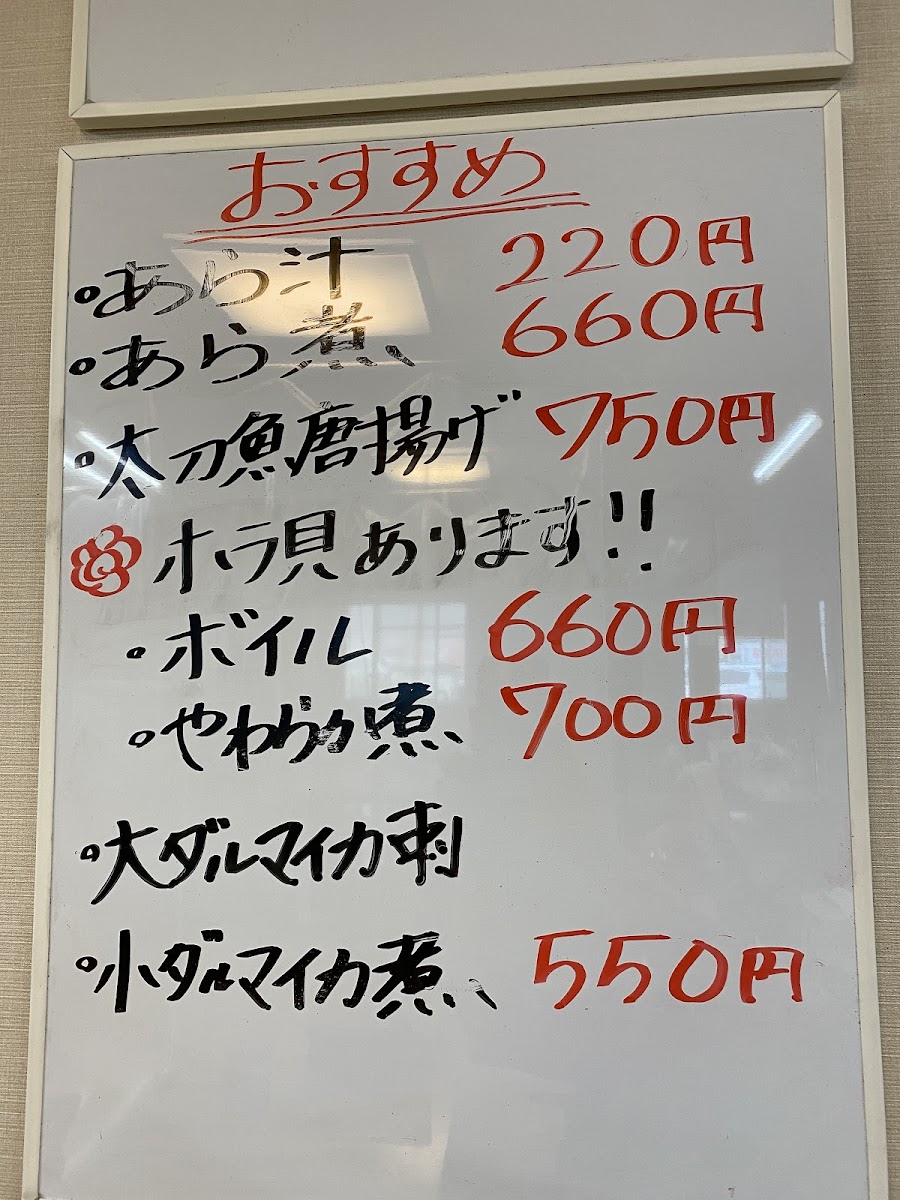 おすすめ
・あら汁 220円
・あら煮 660円
・太刀魚唐揚げ 750円
ホラ貝あります!!
・ボイル 660円
・やわらか煮 700円
・大ダルマイカ刺
・小ダルマイカ煮 550円